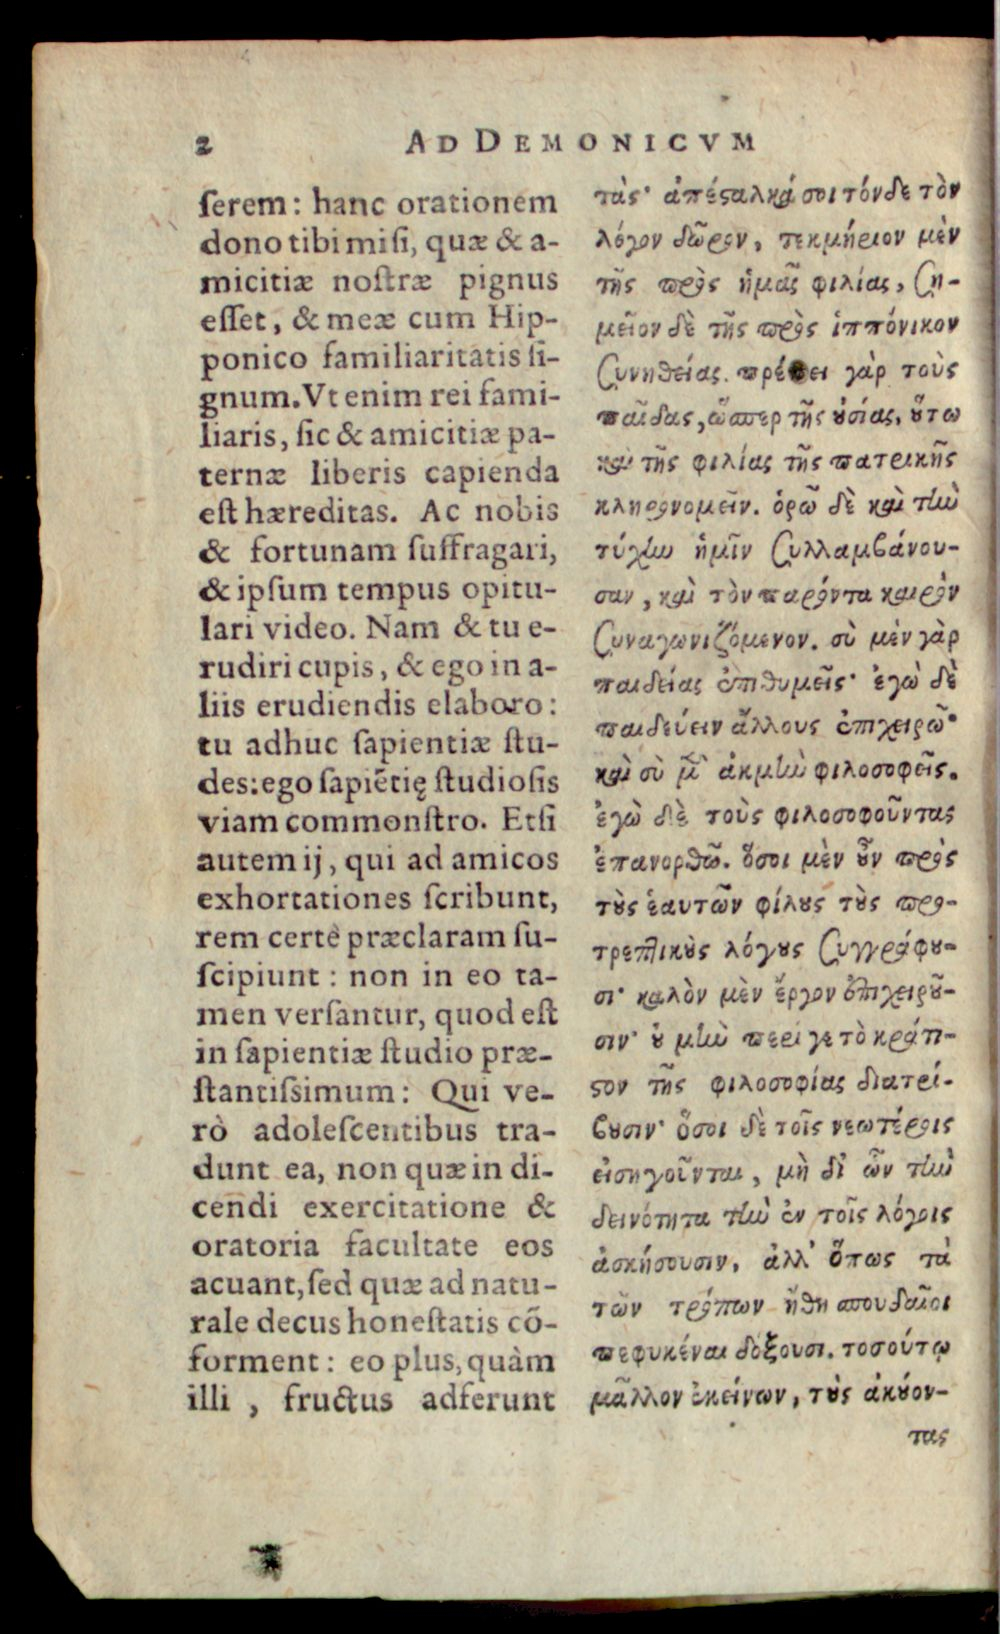 2 AD DEMONICVM
ſerem: hanc orationem
dono tibi miſi, quæ & a-
micitiæ noſtræ pignus
eſſet, & meæ cum Hip-
ponico familiaritatis ſi-
gnum. Vt enim rei fami-
liaris, ſic & amicitiæ pa-
ternæ liberis capienda
eſt hæreditas. Ac nobis
& fortunam ſuffragari,
& ipſum tempus opitu-
lari video. Nam & tu e-
rudiri cupis, & ego in a-
liis erudiendis elaboro:
tu adhuc ſapientiæ ſtu-
des: ego ſapiẽtię ſtudioſis
viam commonſtro. Etſi
autem ij, qui ad amicos
exhortationes ſcribunt,
rem certè præclaram ſu-
ſcipiunt: non in eo ta-
men verſantur, quod eſt
in ſapientiæ ſtudio præ-
ſtantiſsimum: Qui ve-
rò adoleſcentibus tra-
dunt ea, non quæ in di-
cendi exercitatione &
oratoria facultate eos
acuant, ſed quæ ad natu-
rale decus honeſtatis cõ-
forment: eo plus, quàm
illi, fructus adferunt
τὰς· ἀπέϛαλκά σοι τόνδε τὸν
λόγον δῶρον, τεκμήριον μὲν
τῆς πρὸς ἡμᾶς φιλίας, ση-
μεῖον δὲ τῆς πρὸς ἱππόνικον
συνηθείας. πρέπει γὰρ τοὺς
παῖδας, ὥσπερ τῆς ȣσίας, ȣ̔́τω
καὶ τῆς φιλίας τῆς πατρικῆς
κληρονομεῖν. ὁρῶ δὲ καὶ τὴν
τύχην ἡμῖν συλλαμβάνου-
σαν, καὶ τὸν παρόντα καιρὸν
συναγωνιζόμενον. σὺ μὲν γὰρ
παιδείας ἐπιθυμεῖς· ἐγὼ δὲ
παιδεύειν ἄλλους ἐπιχειρῶ·
καὶ σὺ μ̃ ἀκμὴν φιλοσοφεῖς.
ἐγὼ δὲ τοὺς φιλοσοφοῦντας
ἐπανορθῶ. ὅσοι μὲν ȣ̓͂ν πρὸς
τȣ̀ς ἑαυτῶν φίλȣς τȣ̀ς προ-
τρεπτικȣ̀ς λόγȣς συγγράφȣ-
σι· καλὸν μὲν ἔργον ἐπιχειρȣ͂-
σιν· ȣ̓ μὴν περί γε τὸ κράτι-
ϛον τῆς φιλοσοφίας διατρί-
βȣσιν· ὅσοι δὲ τοῖς νεωτέροις
εἰσηγοῦνται, μὴ δι᾽ ὧν τὴν
δεινότητα τὴν ἐν τοῖς λόγοις
ἀσκήσουσιν, ἀλλ᾽ ὅπως τὰ
τῶν τρόπων ἤθη σπουδαῖοι
πεφυκέναι δόξουσι. τοσούτῳ
μᾶλλον ἐκείνων, τȣ̀ς ἀκȣ́ον-
τας